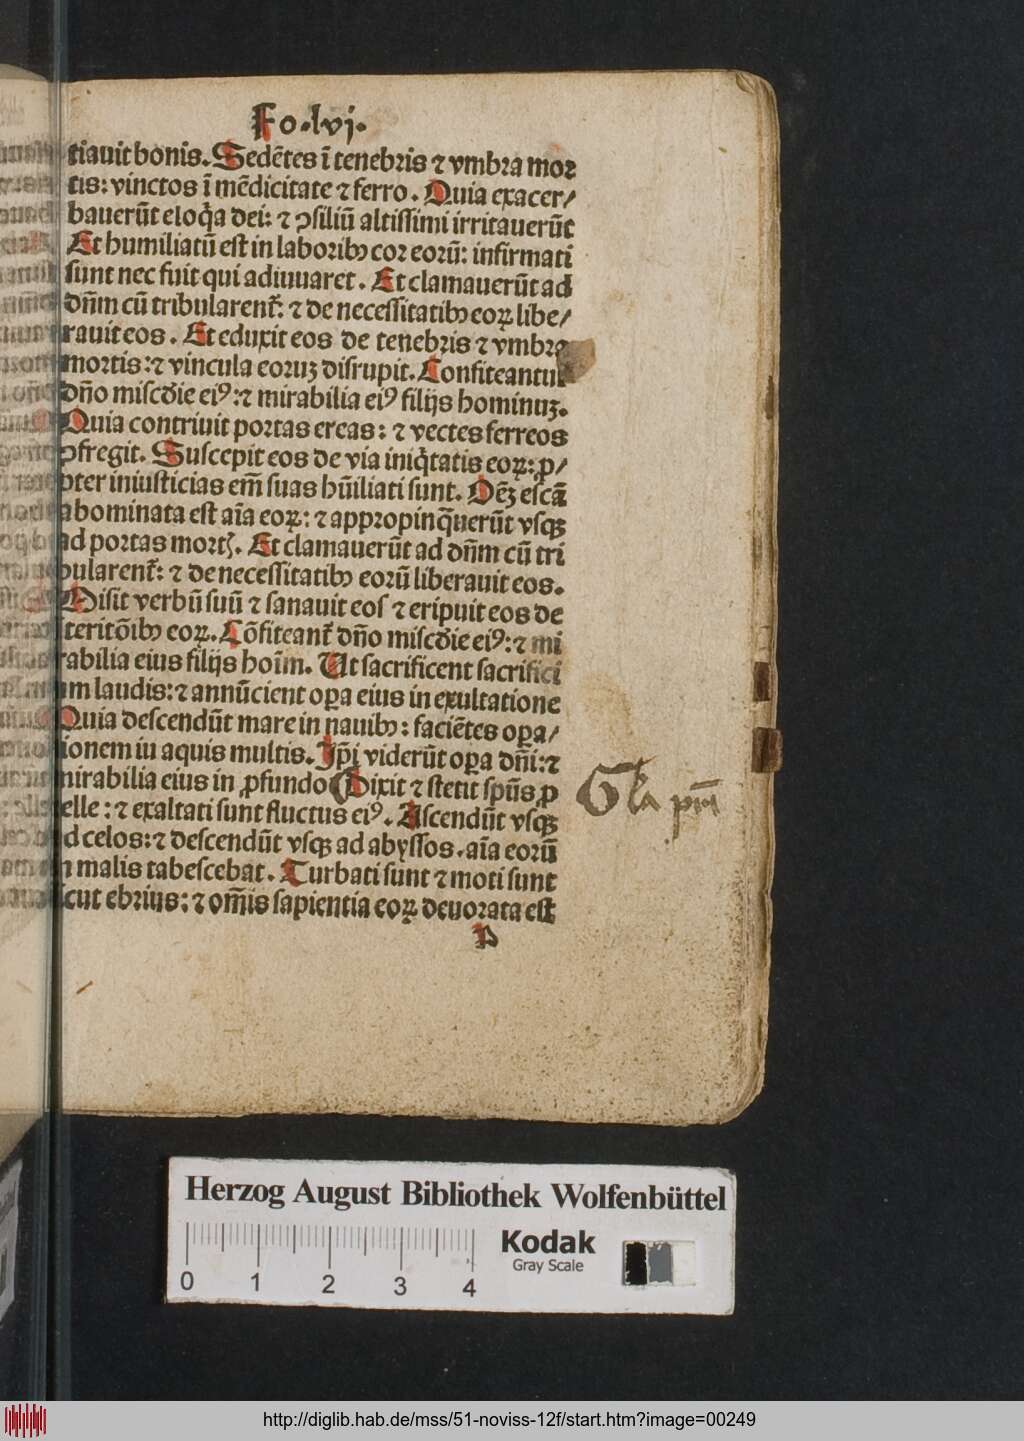 Fo.lvi.
tiauit bonis. Sedẽtes ĩ tenebris ⁊ vmbra mor
tis: vinctos ĩ mẽdicitate ⁊ ferro. Quia exacer/
bauerũt eloq̃a dei: ⁊ ↄsiliũ altissimi irritauerũt
Et humiliatũ est in laboribꝰ cor eorũ: infirmati
sunt nec fuit qui adiuuaret. Et clamauerũt ad
dñm cũ tribularenť: ⁊ de necessitatibꝰ eoꝝ libe/
rauit eos. Et eduxit eos de tenebris ⁊ vmbra
mortis: ⁊ vincula eoruꝫ disrupit. Confiteantur
dño miscd̛ie eiꝰ: ⁊ mirabilia eiꝰ filijs hominuꝫ.
Quia contriuit portas ereas: ⁊ vectes ferreos
ↄfregit. Suscepit eos de via iniq̃tatis eoꝝ: ꝓ/
pter iniusticias em̃ suas hũiliati sunt. Oẽꝫ escã
abominata est aĩa eoꝝ: ⁊ appropinq̃uerũt vsqꝫ
ad portas mortꝭ. Et clamauerũt ad dñm cũ tri
bularenť: ⁊ de necessitatibꝰ eorũ liberauit eos.
Misit verbũ suũ ⁊ sanauit eos ⁊ eripuit eos de
iteritõibꝰ eoꝝ. Cõfiteanť dño miscd̛ie eiꝰ: ⁊ mi
rabilia eius filijs hoĩm. Ut sacrificent sacrifici
um laudis: ⁊ annũcient oꝑa eius in exultatione
Quia descendũt mare in nauibꝰ: faciẽtes oꝑa/
tionem iu aquis multis. Ip̃i viderũt oꝑa dñi: ⁊
mirabilia eius in ꝓfundo Dixit ⁊ stetit spũs ꝓ
celle: ⁊ exaltati sunt fluctus eiꝰ. Ascendũt vsqꝫ
ad celos: ⁊ descendũt vsqꝫ ad abyssos. aĩa eorũ
in malis tabescebat. Turbati sunt ⁊ moti sunt
sicut ebrius: ⁊ om̃is sapientia eoꝝ deuorata est
P
Gľa pr̃i
Herzog August Bibliothek Wolfenbüttel
Kodak
Gray Scale
0 1 2 3 4
http://diglib.hab.de/mss/51-noviss-12f/start.htm?image=00249